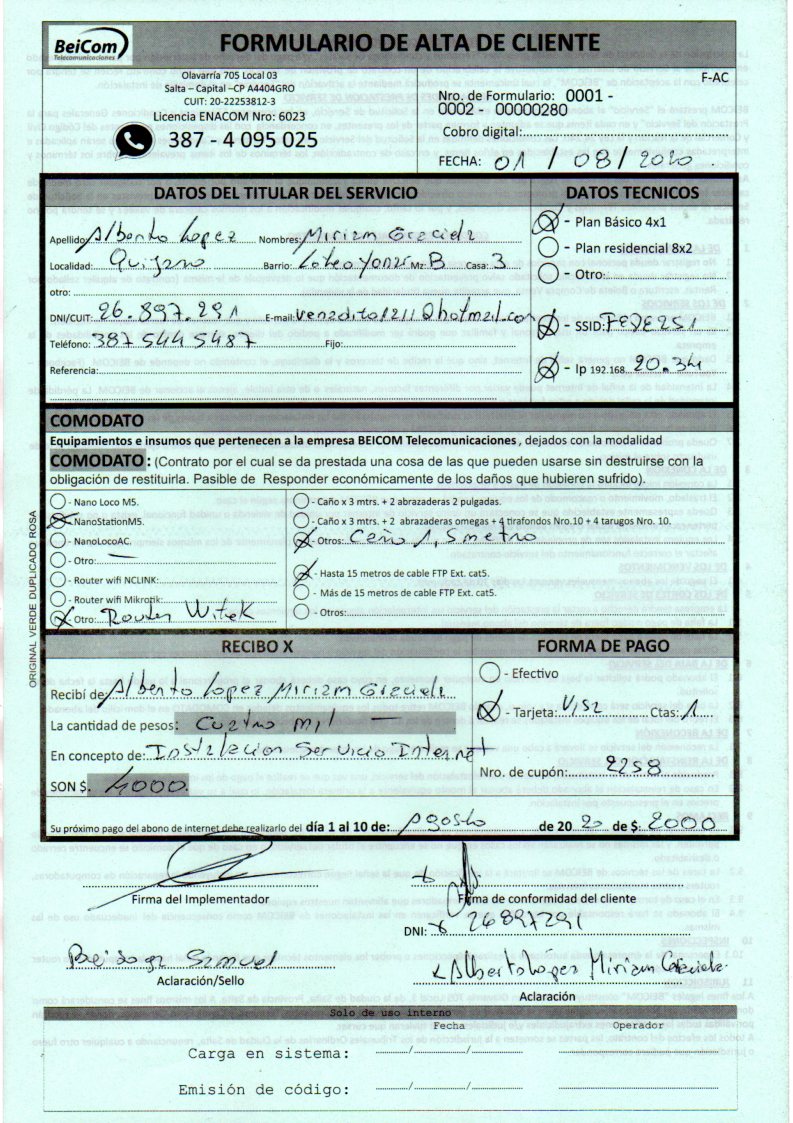 BeiCom
Telecomunicaciones
FORMULARIO DE ALTA DE CLIENTE
Olavarría 705 Local 03
Salta – Capital –CP A4404GRO
CUIT: 20-22253812-3
Licencia ENACOM Nro: 6023
387 - 4 095 025
F-AC
Nro. de Formulario: 0001 -
0002 - 00000280
Cobro digital:
FECHA: 01 / 08 / 2020
DATOS DEL TITULAR DEL SERVICIO
Apellido: Alberto Lopez Nombres: Miriam Graciela
Localidad: Quijano Barrio: Loteo Yanar Mz: B Casa: 3
otro:
DNI/CUIT: 26.897.291 E-mail: venadito1211@hotmail.com
Teléfono: 387 544 5487 Fijo:
Referencia:
DATOS TECNICOS
- Plan Básico 4x1
- Plan residencial 8x2
- Otro:
- SSID: FEDE251
- Ip 192.168. 20.34
COMODATO
Equipamientos e insumos que pertenecen a la empresa BEICOM Telecomunicaciones, dejados con la modalidad
COMODATO: (Contrato por el cual se da prestada una cosa de las que pueden usarse sin destruirse con la
obligación de restituirla. Pasible de Responder económicamente de los daños que hubieren sufrido).
- Nano Loco M5.
- NanoStationM5.
- NanoLocoAC.
- Otro:
- Router wifi NCLINK:
- Router wifi Mikrotik:
- Otro: Router Witek
- Caño x 3 mtrs. + 2 abrazaderas 2 pulgadas.
- Caño x 3 mtrs. + 2 abrazaderas omegas + 4 tirafondos Nro.10 + 4 tarugos Nro. 10.
- Otros: Caño 1,5 metro
- Hasta 15 metros de cable FTP Ext. cat5.
- Más de 15 metros de cable FTP Ext. cat5.
- Otros:
ORIGINAL VERDE DUPLICADO ROSA
RECIBO X
Recibí de: Alberto Lopez Miriam Graciela
La cantidad de pesos: Cuatro mil —
En concepto de: Instalacion Servicio Internet
SON $. 4000.
FORMA DE PAGO
- Efectivo
- Tarjeta: Visa Ctas: 1
Nro. de cupón: 2258
Su próximo pago del abono de internet debe realizarlo del día 1 al 10 de: Agosto de 20 20 de $: 2000
Firma del Implementador
Firma de conformidad del cliente
DNI: x 26897291
Samuel
Aclaración/Sello
x Alberto López Miriam Graciela
Aclaración
Solo de uso interno
Fecha Operador
Carga en sistema: / /
Emisión de código: / /